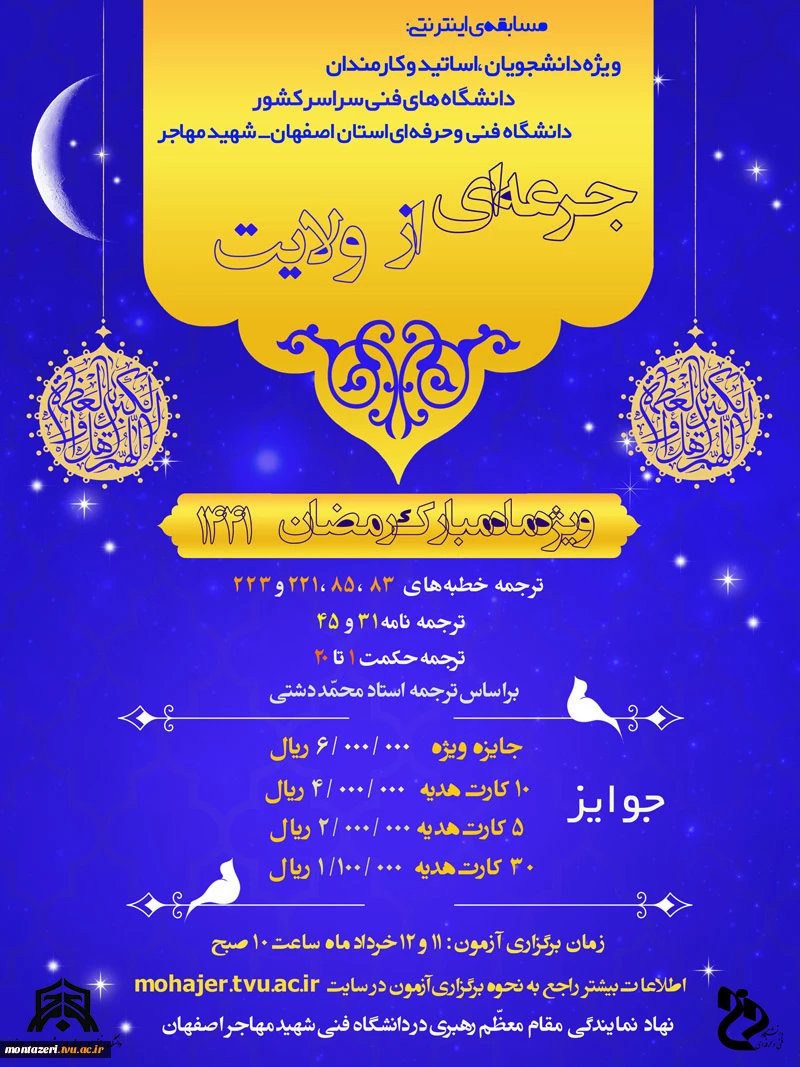 مسابقه‌ی اینترنتی:
ویژه دانشجویان ،اساتید و کارمندان
دانشگاه های فنی سراسر کشور
دانشگاه فنی وحرفه ای استان اصفهان_ شهید مهاجر
جرعه‌ای از ولایت
ویژه ماه مبارک رمضان ۱۴۴۱
ترجمه خطبه های ۸۳ ،۸۵ ،۲۲۱ و ۲۲۳
ترجمه نامه ۳۱ و ۴۵
ترجمه حکمت ۱ تا ۲۰
براساس ترجمه استاد محمّد دشتی
جوایز
جایزه ویژه ۶/۰۰۰/۰۰۰ ریال
۱۰ کارت هدیه ۴/۰۰۰/۰۰۰ ریال
۵ کارت هدیه ۲/۰۰۰/۰۰۰ ریال
۳۰ کارت هدیه ۱/۱۰۰/۰۰۰ ریال
زمان برگزاری آزمون: ۱۱ و ۱۲ خرداد ماه ساعت ۱۰ صبح
اطلاعات بیشتر راجع به نحوه برگزاری آزمون در سایت mohajer.tvu.ac.ir
نهاد نمایندگی مقام معظّم رهبری در دانشگاه فنی شهید مهاجر اصفهان
montazeri.tvu.ac.ir